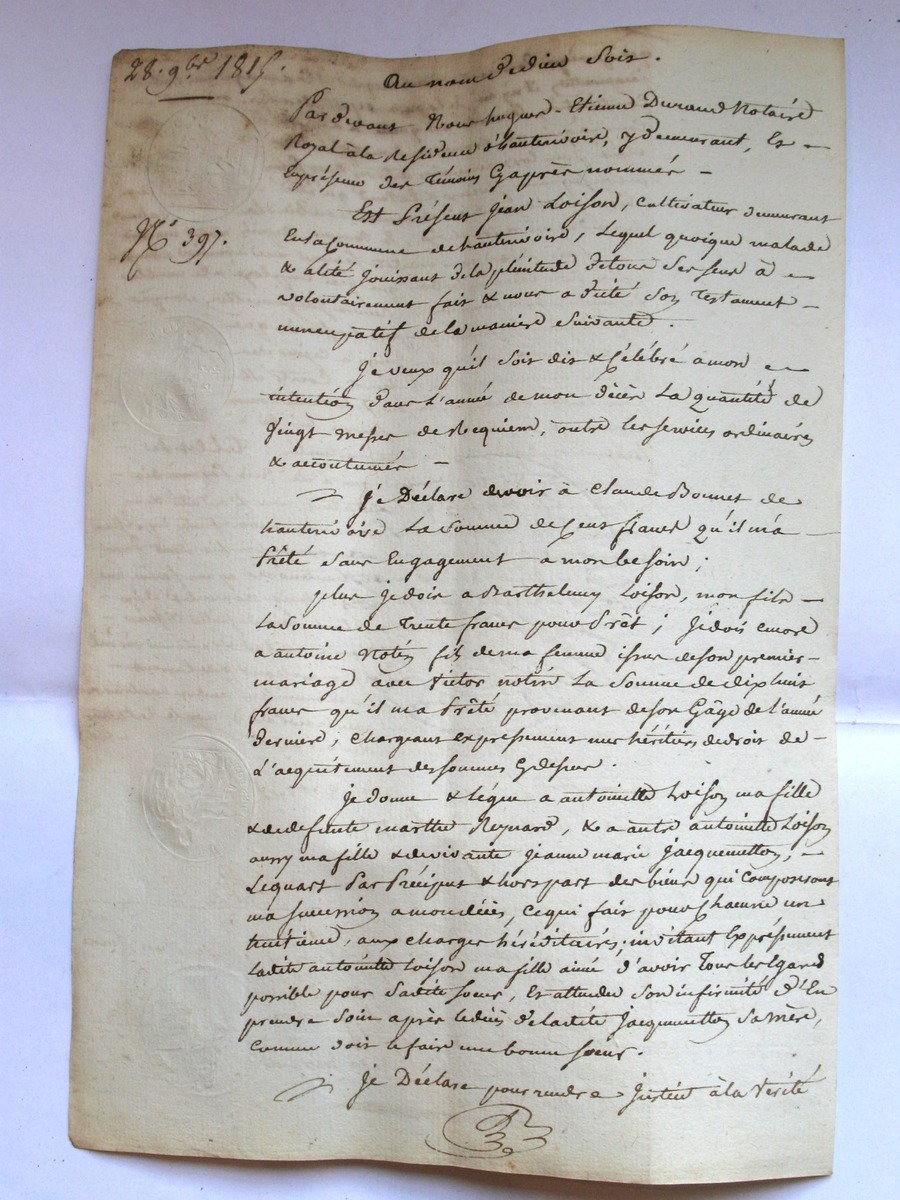 28. 9bre 1815.
Au nom de dieu soit.
Pardevant Nous hugues-Etienne Durand Notaire
Royal à la Residence d'hauterivoire, y demeurant, Et
En présence des Témoins Cy après nommés
N° 397.
Est Présent Jean Loison, Cultivateur demeurant
En la Commune de hauterivoire, Lequel quoique malade
& alité jouissant de la plénitude de tous Ses Sens à
volontairement fait & nous a dicté Son Testament
nuncupatif de la maniere Suivante.
Je veux qu'il Soit dit & Célébré a mon
intention dans L'année de mon décès La quantité de
Vingt messes de Requiem, outre les Services ordinaires
& accoutumés
Je Déclare devoir à Claude Bonnet de
hauterivoire La Somme de Cent francs qu'il m'a
Prêté Sans Engagement a mon besoin;
plus je dois a Barthelemy Loison, mon fils
La Somme de Trente francs pour Prêt; Je dois encore
a antoine Notin fils de ma femme issus de Son premier
mariage avec Victor notin La Somme de dix huit
francs qu'il m'a Prêté provenant de Son Gâge de l'année
Derniere; Chargeant Expressement mes héritiers de droit de
L'acquittement des Sommes Cy dessus.
Je donne & légue a antoinette Loison ma fille
& de defunte marthe Reynard, & a autre antoinette Loison
aussy ma fille & de vivante Jeanne marie Jacquemetton,
Le quart Par Préciput & hors part des biens qui Composeront
ma Succession a mon décès, Ce qui fait pour Chacune un
huitiéme, aux Charges héréditaires; invitant Expressement
Ladite antoinette Loison ma fille ainée d'avoir Tous les Egards
possible pour Sadite Soeur, Et attendu Son infirmité d'En
prendre Soin après le décès de ladite Jacquemetton Sa Mère,
Comme doit le faire une bonne Soeur.
Je Déclare pour rendre Justice à la Vérité